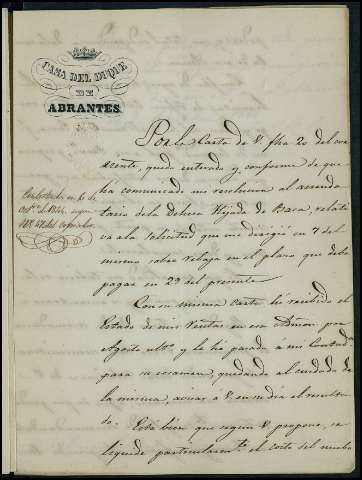 CASA DEL DUQUE
DE
ABRANTES.
Por la Carta de V. fha 20 del co
rriente, quedo enterado y conforme de que
ha comunicado mi resolucion al arrenda
tario de la Dehesa Hijada de Baza, relati
va á la solicitud que me dirigió en 7 del
mismo sobre rebaja en el plazo que debe
pagar en 29 del presente
Con su misma carta he recibido el
Estado de mis Rentas en esa Admon. por
Agosto ulto. y le he pasado á mi Contadª
para su examen, quedando al cuidado de
la misma, avisar á V. en su dia el resulta
do.
Está bien que segun V. propone, se
liquide particularmte. el coste del
Contestada en 6 de
de segun
del copiador